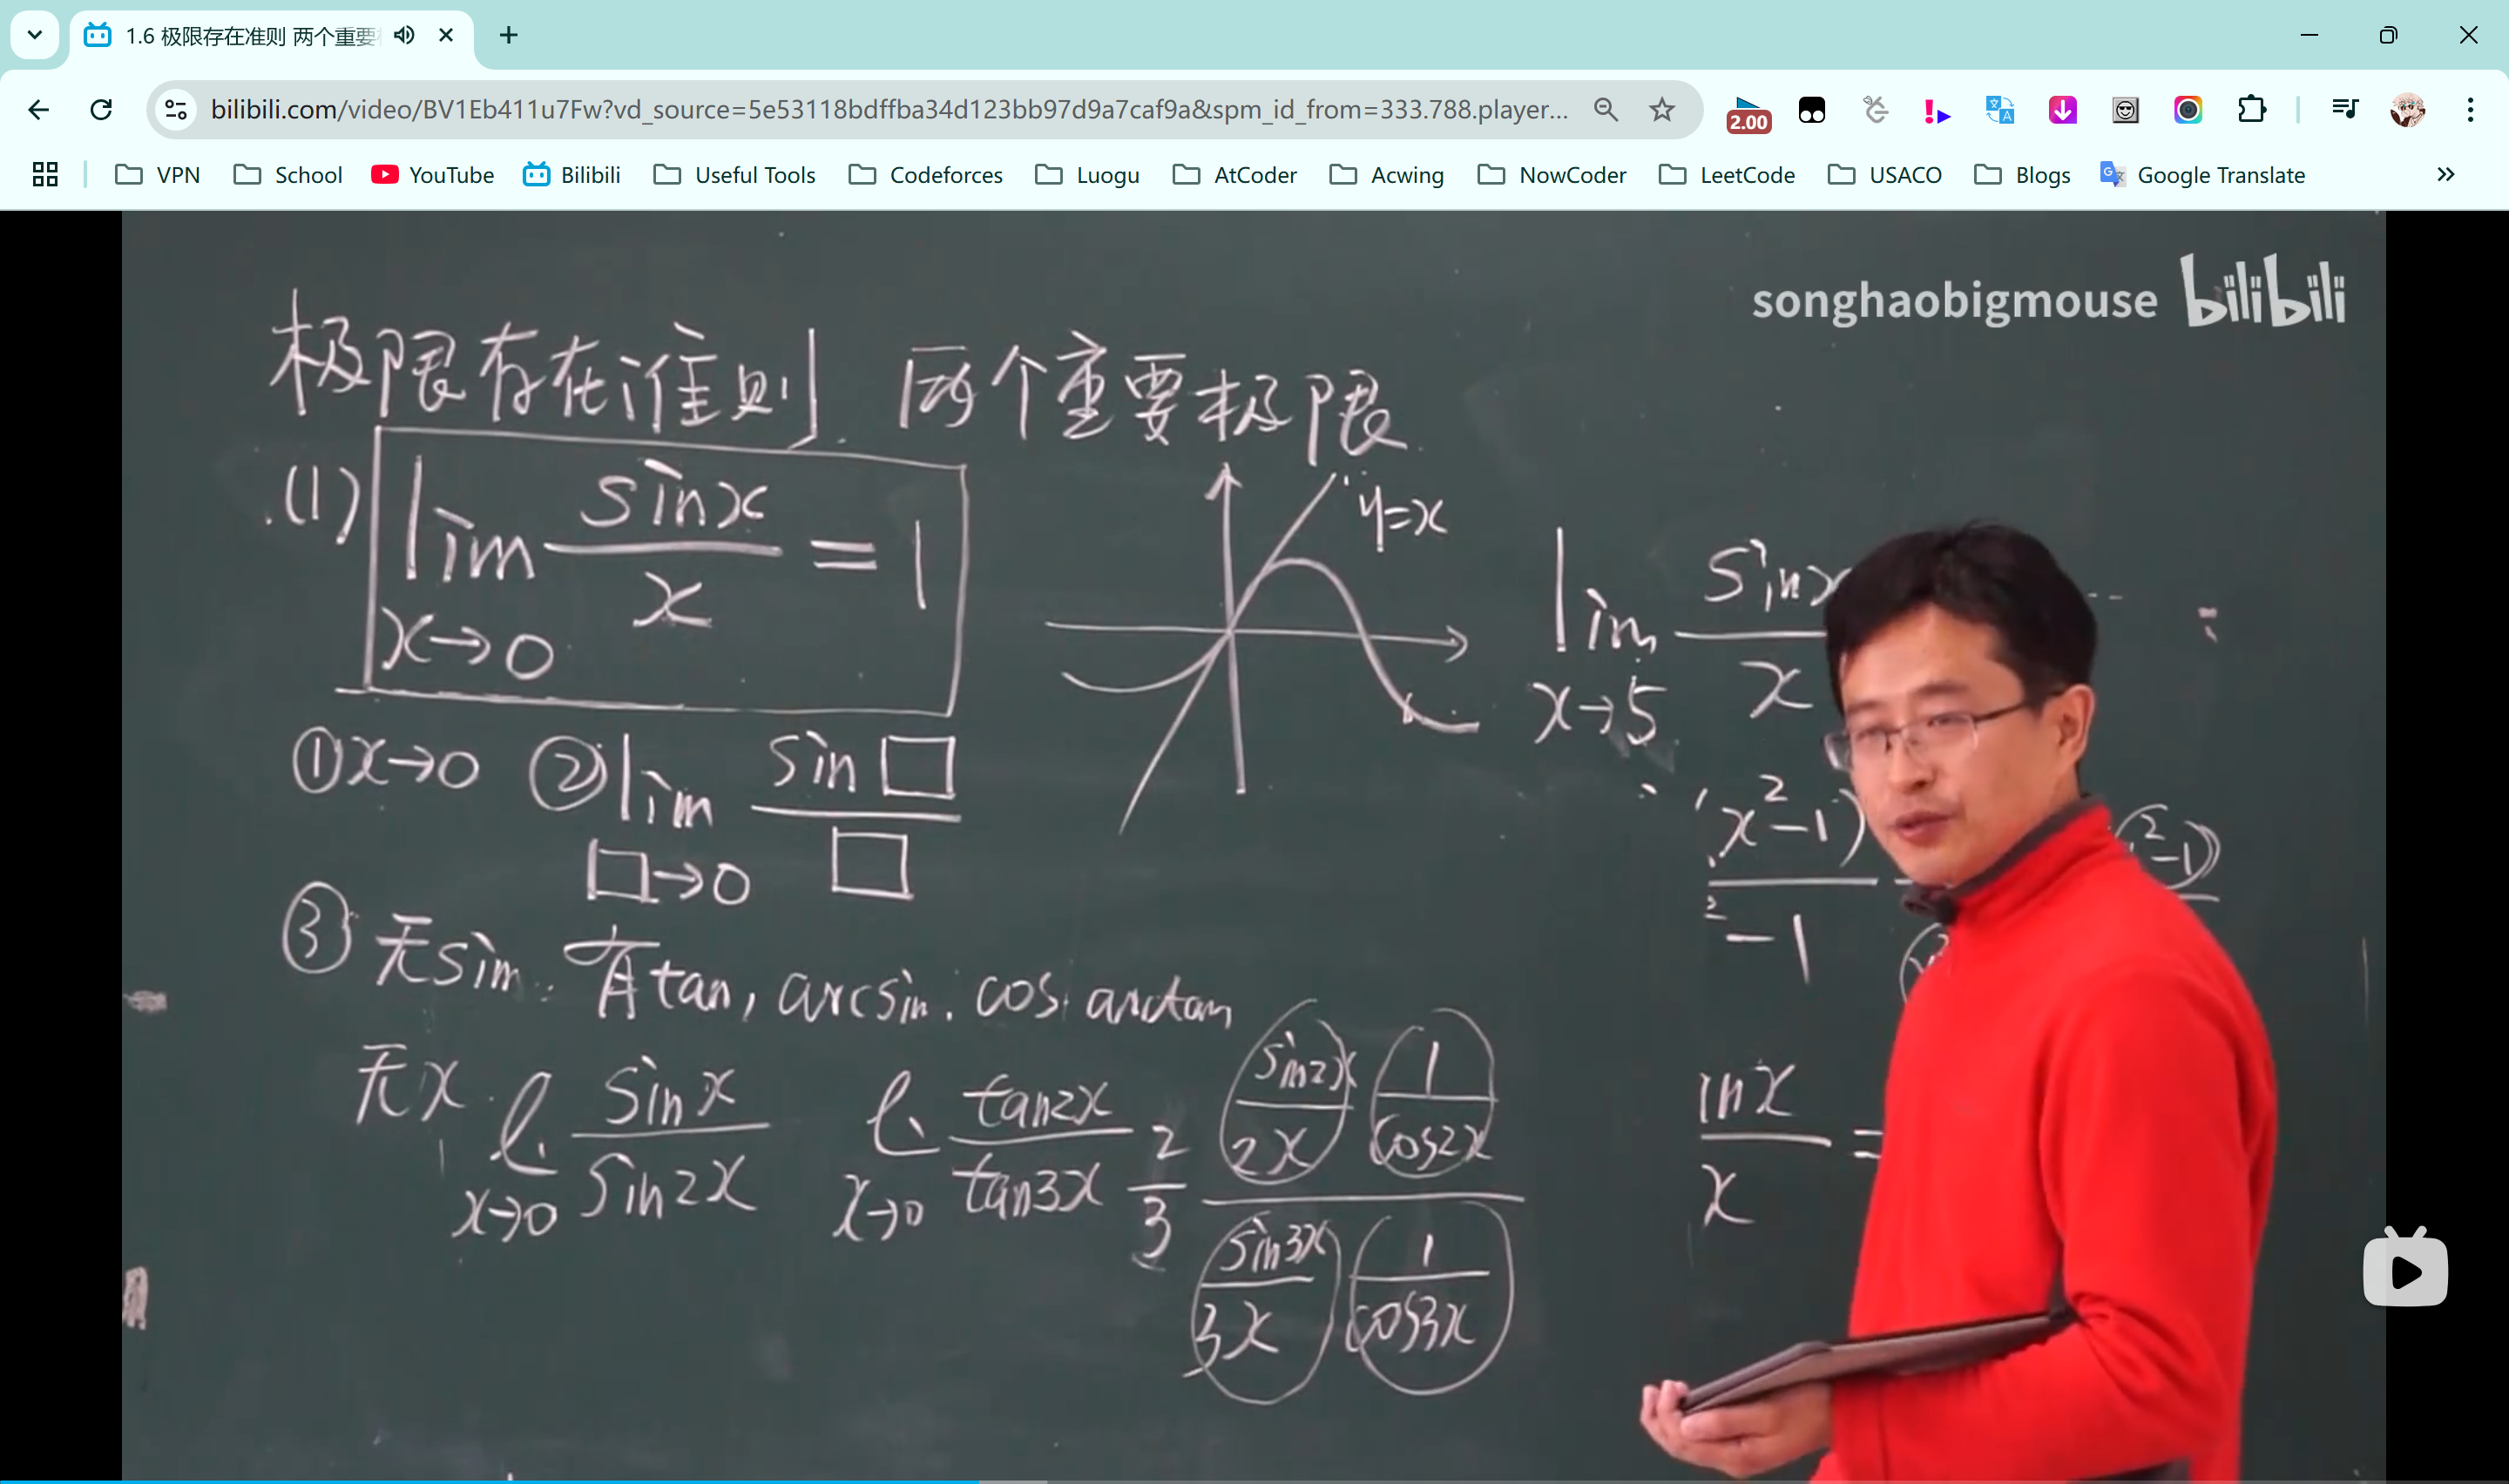 1.6 极限存在准则 两个重要
bilibili.com/video/BV1Eb411u7Fw?vd_source=5e53118bdffba34d123bb97d9a7caf9a&spm_id_from=333.788.player...
2.00
VPN School YouTube Bilibili Useful Tools Codeforces Luogu AtCoder Acwing NowCoder LeetCode USACO Blogs Google Translate
songhaobigmouse bilibili
极限存在准则 两个重要极限
(1) lim x→0 sinx/x = 1
y=x
lim x→5 sinx/x
①x→0 ②lim □→0 sin□/□
x²-1)
²-1
²-1)
③无sin. 有tan, arcsin. cos arctan
无x. l. x→0 sinx/sin2x l. x→0 tan2x/tan3x 2/3 sin2x/2x 1/cos2x
sin3x/3x 1/cos3x
inx/x =